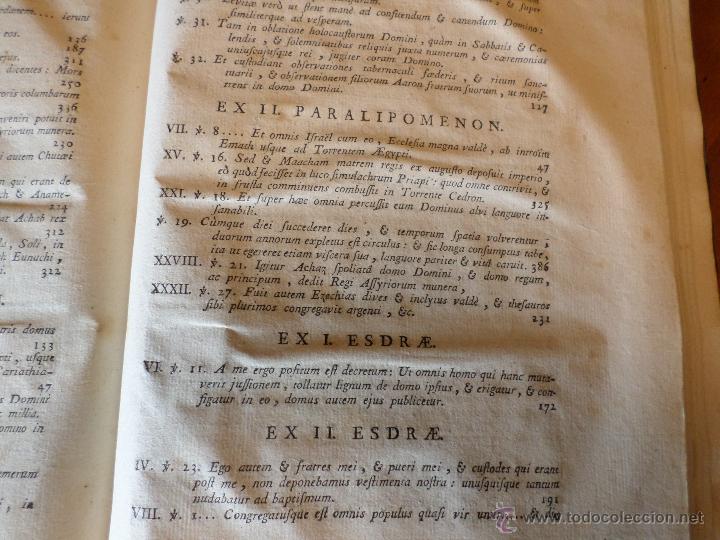 dianem.
ierunt
eos.
136
187
311
dicentes : Mors
250
oris columbarum
336
nveniri potuit in
yriorum munera.
230
i autem Chutæi
qui erant de
ch & Aname-
224
at Achab rex
313
la, Soli, in
Eunuchi,
312
322
I.
tris domus
133
zi, usque
Cariathia-
47
s Domini
x millia.
omino in
nemerum
in
& super
Levitæ verò ut stent manè ad confitendum & canendum Domino:
similiterque ad vesperam.
℣. 31. Tam in oblatione holocaustorum Domini, quàm in Sabbatis & Ca-
lendis, & solemnitatibus reliquis juxta numerum, & cæremonias
uniuscujusque rei, jugiter coram Domino.
℣. 32. Et custodiant observationes tabernaculi fœderis, & ritum sanc-
tuarii, & observationem filiorum Aaron fratrum suorum, ut minis-
trent in domo Domini. 127
EX II. PARALIPOMENON.
VII. ℣. 8.... Et omnis Israël cum eo, Ecclesia magna valdè, ab introïtu
Emath usque ad Torrentem Ægypti. 47
XV. ℣. 16. Sed & Maacham matrem regis ex augusto deposuit imperio,
eò quòd fecisset in luco simulachrum Priapi: quod omne contrivit, &
in frusta comminuens combussit in Torrente Cedron. 325
XXI. ℣. 18. Et super hæc omnia percussit eum Dominus alvi languore in-
sanabili.
℣. 19. Cùmque diei succederet dies, & temporum spatia volverentur,
duorum annorum expletus est circulus: & sic longa consumptus tabe,
ita ut egereret etiam viscera sua, languore pariter & vitâ caruit. 386
XXVIII. ℣. 21. Igitur Achaz spoliatâ domo Domini, & domo regum,
ac principum, dedit Regi Assyriorum munera,
XXXII. ℣. 27. Fuit autem Ezechias dives & inclytus valdè, & thesauros
sibi plurimos congregavit argenti, &c.
231
EX I. ESDRÆ.
VI. ℣. 11. A me ergo positum est decretum: Ut omnis homo qui hanc muta-
verit jussionem, tollatur lignum de domo ipsius, & erigatur, & con-
figatur in eo, domus autem ejus publicetur. 172
EX II. ESDRÆ.
IV. ℣. 23. Ego autem & fratres mei, & pueri mei, & custodes qui erant
post me, non deponebamus vestimenta nostra: unusquisque tantum
nudabatur ad baptismum. 191
VIII. ℣. 1.... Congregatusque est omnis populus quasi vir unus....
© www.todocoleccion.net